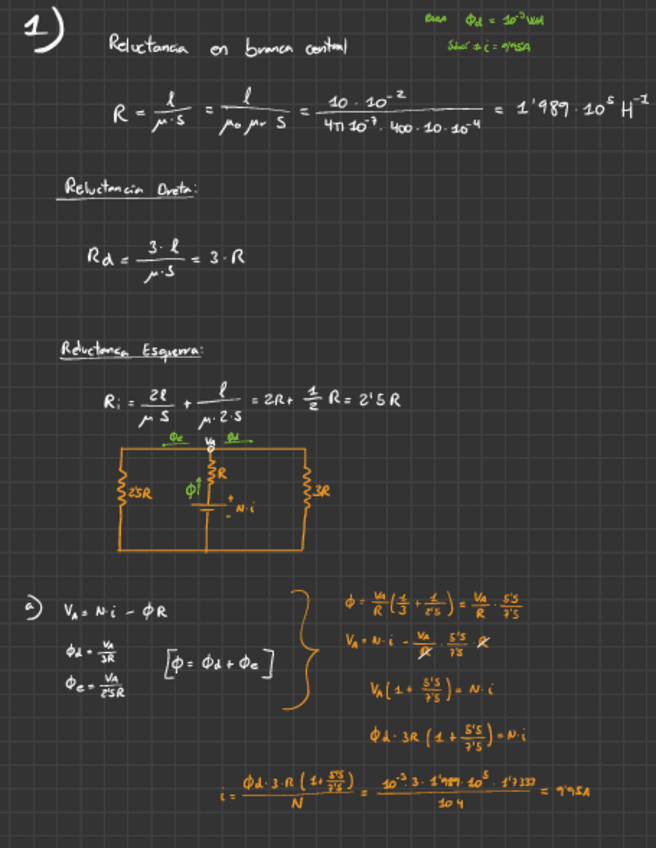 1)
Reluctancia en branca central
PARA Φd = 10⁻³ Wb
i = 9'95A
R = l / μ·S = l / μ₀ μr S = 10 · 10⁻² / 4π 10⁻⁷ · 400 · 10 · 10⁻⁴ = 1'989 · 10⁵ H⁻¹
Reluctancia Dreta:
Rd = 3·l / μ·S = 3·R
Reluctancia Esquerra:
Ri = 2l / μ S + l / μ·2·S = 2R + 1/2 R = 2'5R
Φe VA Φd
2'5R Φ↑ R + - N·i 3R
a) VA = N·i - ΦR
Φd = VA / 3R
Φe = VA / 2'5R
[Φ = Φd + Φe]
Φ = VA/R (1/3 + 1/2'5) = VA/R · 5'5/7'5
VA = N·i - VA/R · 5'5/7'5 · R
VA (1 + 5'5/7'5) = N·i
Φd · 3R (1 + 5'5/7'5) = N·i
i = Φd·3·R (1 + 5'5/7'5) / N = 10⁻³·3·1'989·10⁵·1'7333 / 104 = 9'95A